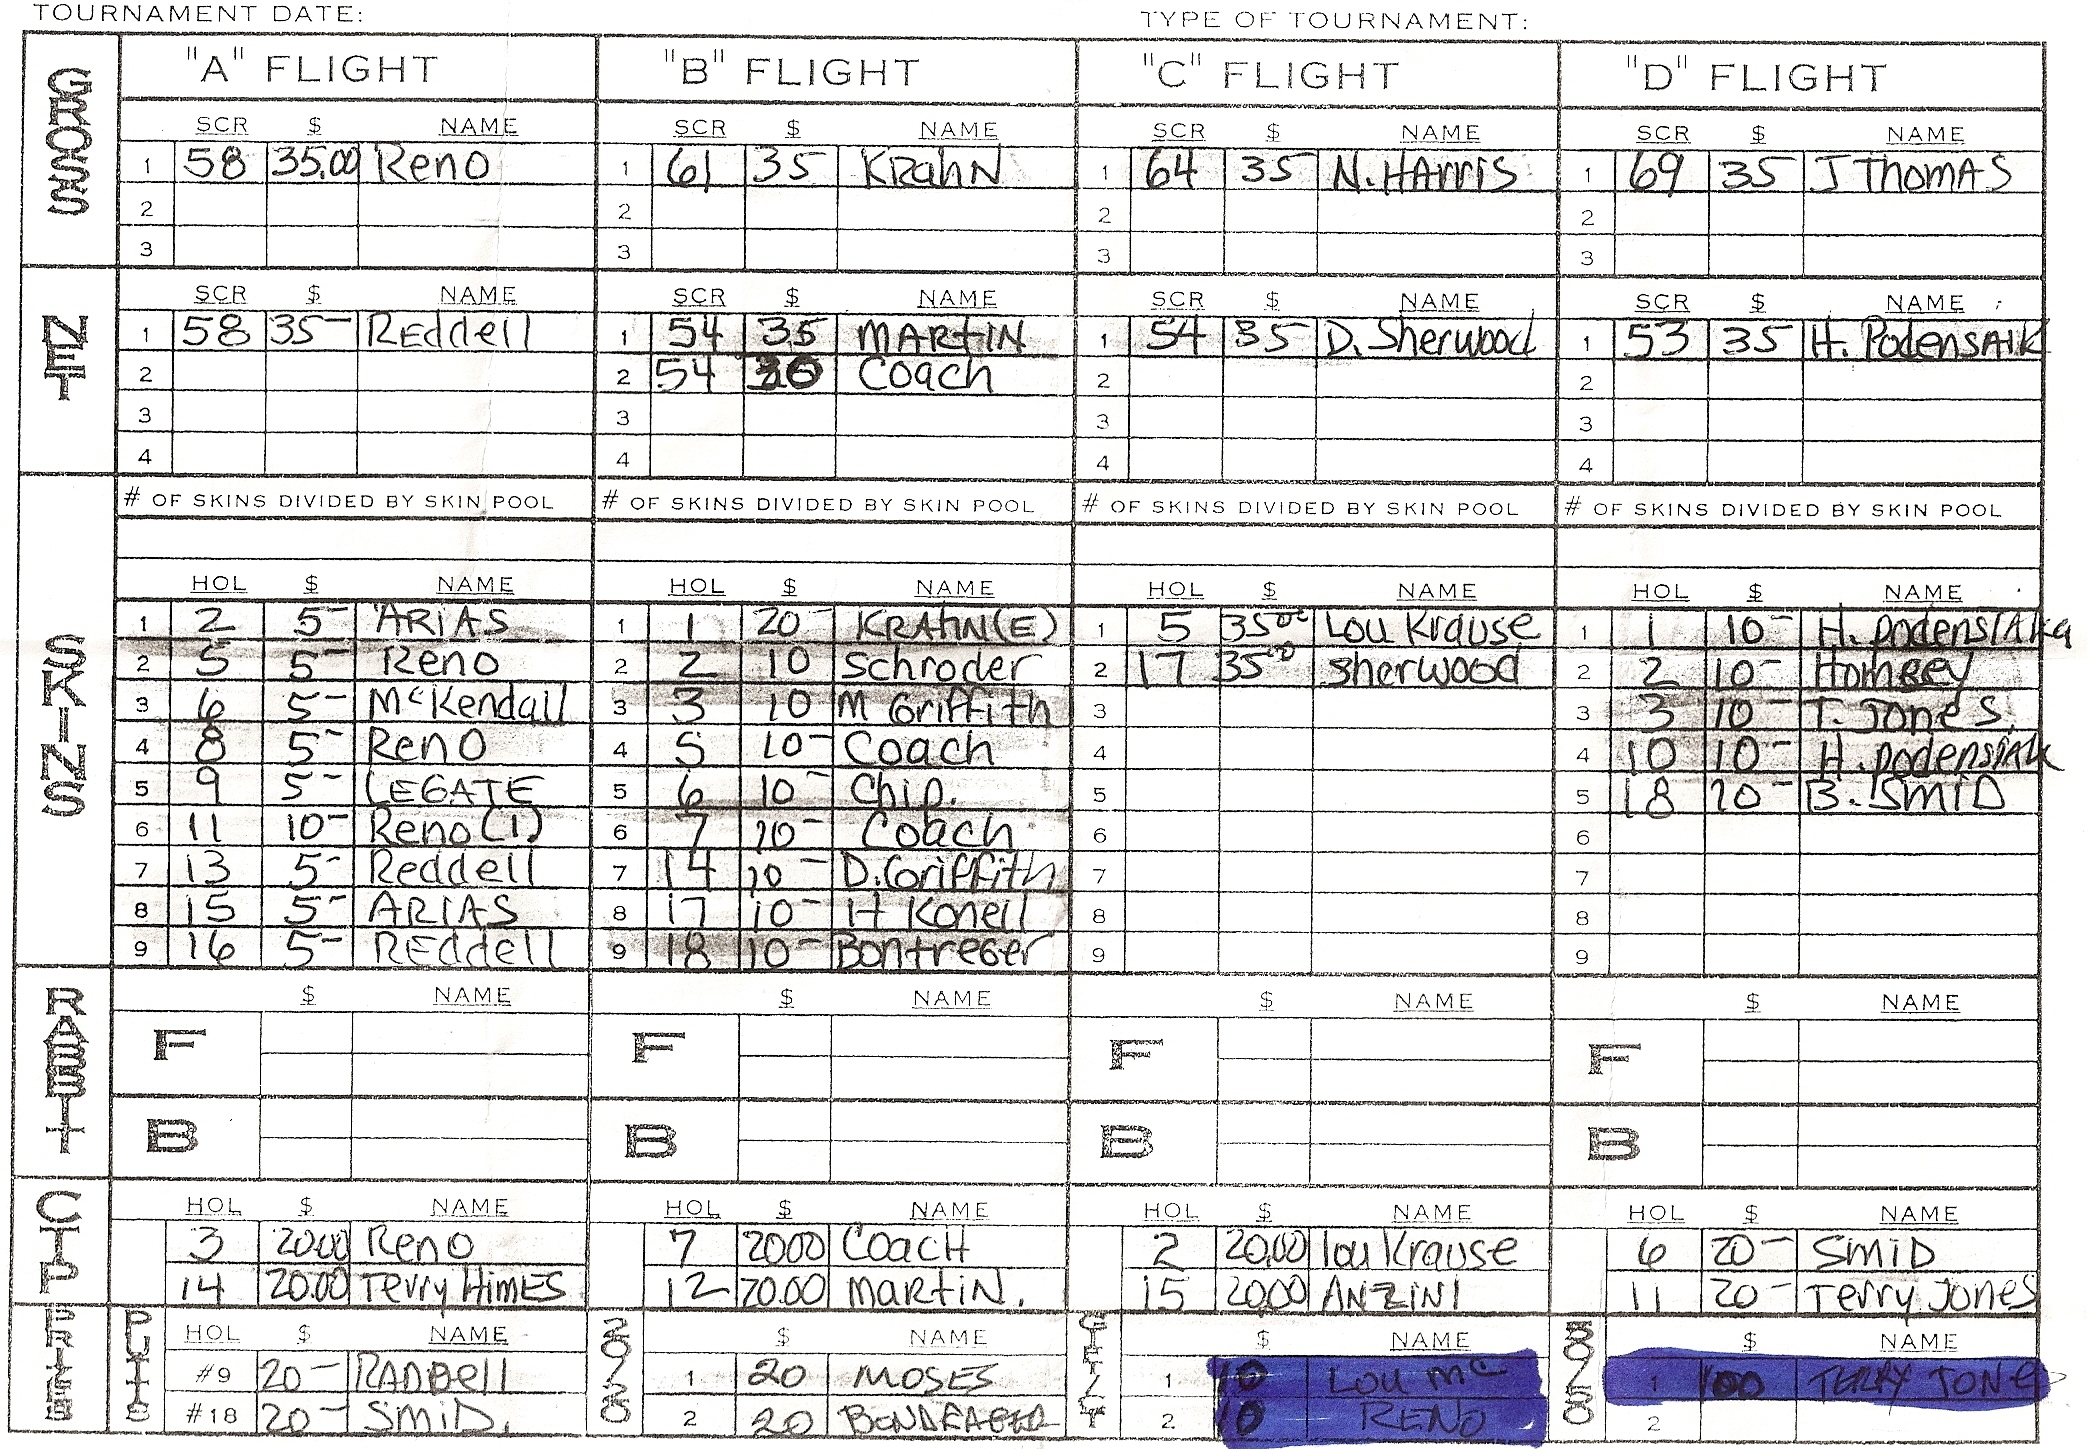 TOURNAMENT DATE: TYPE OF TOURNAMENT:
GROSS
"A" FLIGHT "B" FLIGHT "C" FLIGHT "D" FLIGHT
SCR $ NAME SCR $ NAME SCR $ NAME SCR $ NAME
1 58 35.00 Reno 1 61 35 KRahN 1 64 35 N. HArris 1 69 35 J THomAS
2 2 2 2
3 3 3 3
NET
SCR $ NAME SCR $ NAME SCR $ NAME SCR $ NAME
1 58 35- REddell 1 54 35 MARtIN 1 54 35 D. Sherwood 1 53 35 H. PodensAIK
2 2 54 Coach 2 2
3 3 3 3
4 4 4 4
SKINS
# OF SKINS DIVIDED BY SKIN POOL # OF SKINS DIVIDED BY SKIN POOL # OF SKINS DIVIDED BY SKIN POOL # OF SKINS DIVIDED BY SKIN POOL
HOL $ NAME HOL $ NAME HOL $ NAME HOL $ NAME
1 2 5- ARiAS 1 1 20- KRAhN(E) 1 5 35 00 LOU Krause 1 1 10- H.
2 5 5- Reno 2 2 10 Schroder 2 17 35 00 Sherwood 2 2 10-
3 6 5- McKendall 3 3 10 M Griffith 3 3 3 10- T. Jones
4 8 5- Reno 4 5 10- Coach 4 4 10 10- H. podensIAK
5 9 5- LEGATE 5 6 10- Chip. 5 5 18 20- B. SmiD
6 11 10- Reno (1) 6 7 10- Coach 6 6
7 13 5- Reddell 7 14 10- D. Griffith 7 7
8 15 5- ARIAS 8 17 10- H Koneil 8 8
9 16 5- REddell 9 18 10- Bontreger 9 9
RABBIT
$ NAME $ NAME $ NAME $ NAME
F F F F
B B B B
CTP
HOL $ NAME HOL $ NAME HOL $ NAME HOL $ NAME
3 20.00 Reno 7 20.00 COACH 2 20.00 lou Krause 6 20- SMiD
14 20.00 Terry HimES 12 20.00 MartiN. 15 20.00 ANZINI 11 20- Terry Jones
PRIZES PUTTS
HOL $ NAME $ NAME $ NAME 50/50 $ NAME
#9 20- RADDEll 1 20 MOSES 1 10 LOU Mc 1 100 TERRY JONES
#18 20- SMiD. 2 20 2 10 RENO 2